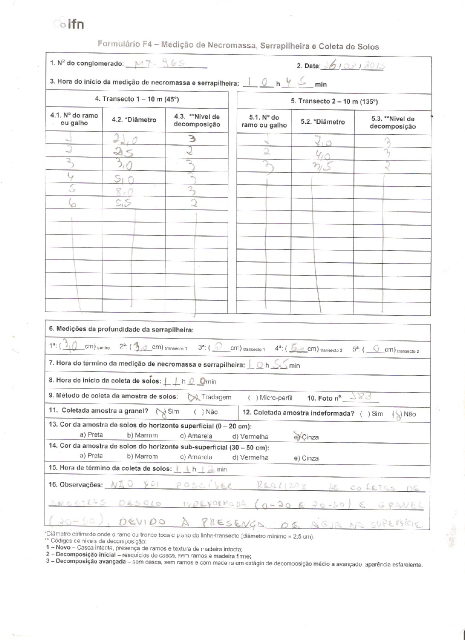 ifn
Formulário F4 – Medição de Necromassa, Serrapilheira e Coleta de Solos
1. Nº do conglomerado: MT-865 2. Data:
3. Hora do início da medição de necromassa e serrapilheira: 10 h 45 min
4. Transecto 1 – 10 m (45°) 5. Transecto 2 – 10 m (135°)
4.1. Nº do ramo ou galho 4.2. *Diâmetro 4.3. **Nível de decomposição 5.1. Nº do ramo ou galho 5.2. *Diâmetro 5.3. **Nível de decomposição
1 3 1 7,0 3
2 2,5 2 2 4,0 2
3 3,0 3 3 3,5 2
4 5,0 2
5 8,0 3
6 5,5 2
6. Medições da profundidade da serrapilheira:
1ª: (3,0 cm) centro 2ª: ( cm) transecto 1 3ª: (0 cm) transecto 1 4ª: ( cm) transecto 2 5ª: (0 cm) transecto 2
7. Hora do término da medição de necromassa e serrapilheira: 10 h 55 min
8. Hora do início da coleta de solos: 11 h 00 min
9. Método de coleta da amostra de solos: (X) Tradagem ( ) Micro-perfil 10. Foto nº 383
11. Coletada amostra a granel? (X) Sim ( ) Não 12. Coletada amostra indeformada? ( ) Sim (X) Não
13. Cor da amostra de solos do horizonte superficial (0 – 20 cm):
a) Preta b) Marrom c) Amarela d) Vermelha e) Cinza
14. Cor da amostra de solos do horizonte sub-superficial (30 – 50 cm):
a) Preta b) Marrom c) Amarela d) Vermelha e) Cinza
15. Hora de término da coleta de solos: 11 h min
16. Observações: NÃO FOI POSSÍVEL REALIZAR AS COLETAS DE
DE SOLO INDEFORMADA (0-20 E 30-50) E GRANEL
(30-50), DEVIDO À PRESENÇA DE ÁGUA NA SUPERFÍCIE.
*Diâmetro estimado onde o ramo ou tronco toca o plano da linha-transecto (diâmetro mínimo = 2,5 cm)
** Códigos de níveis de decomposição:
1 – Novo – Casca intacta, presença de ramos e textura da madeira intacta;
2 – Decomposição inicial – resquícios de casca, sem ramos e madeira firme;
3 – Decomposição avançada – sem casca, sem ramos e com madeira um estágio de decomposição médio a avançado, aparência esfarelante.